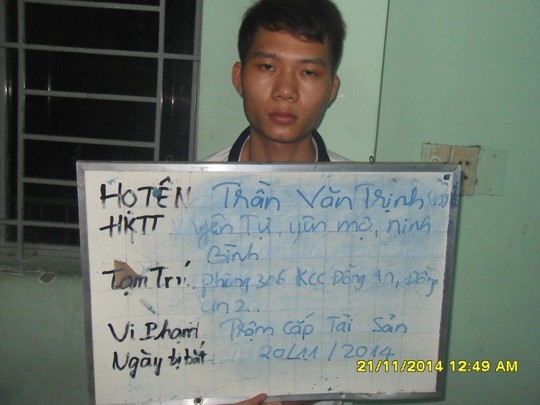 HỌ TÊN Trần Văn Trịnh
HKTT Yên Tự, yên mô, ninh
Bình
Tạm Trú phòng 306 KCC Đồng An, Đồng
An 2.
Vi Phạm Trộm Cắp Tài Sản
Ngày bị bắt 20/11/2014
21/11/2014 12:49 AM